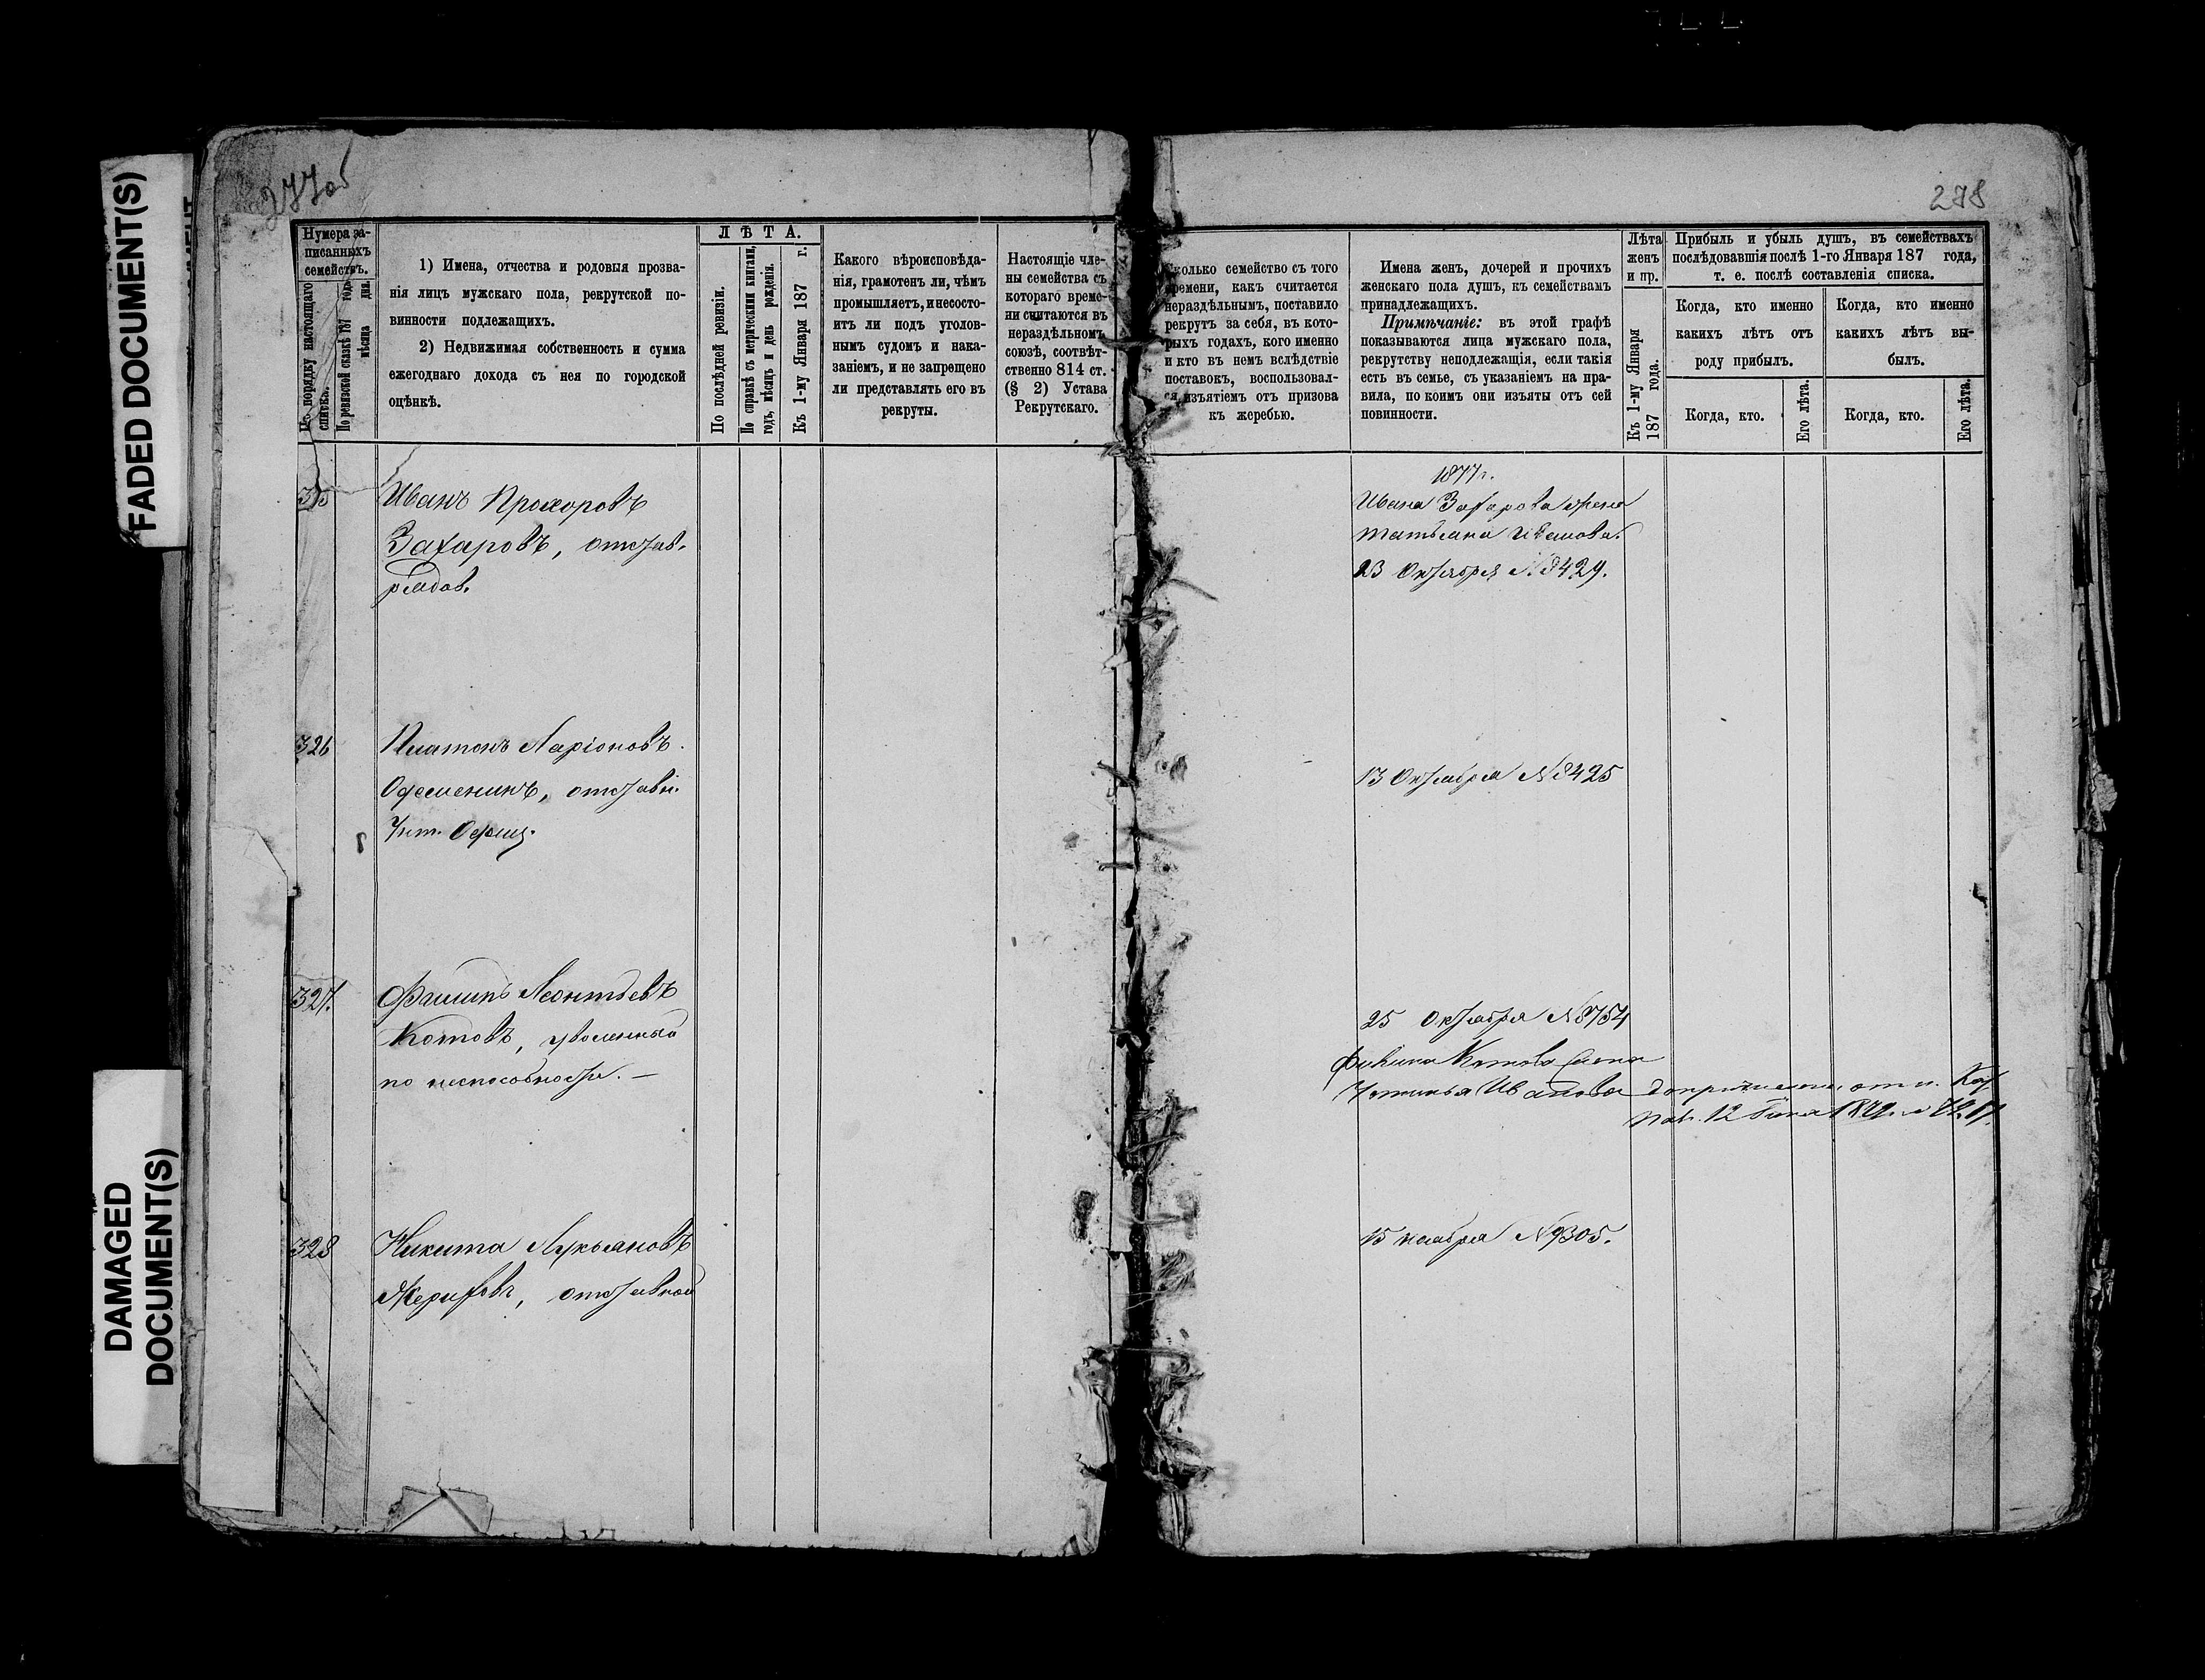 FADED DOCUMENT(S)
DAMAGED
DOCUMENT(S)
277об
Нумера за-
писанныхъ
семействъ.
По порядку настоящаго
списка.
По ревизской сказкѣ 187 года
мѣсяца дня.
1) Имена, отчества и родовыя прозва-
нія лицъ мужскаго пола, рекрутской по-
винности подлежащихъ.
2) Недвижимая собственность и сумма
ежегоднаго дохода съ нея по городской
оцѣнкѣ.
ЛѢТА.
По послѣдней ревизіи.
По справкѣ съ метрическими книгами,
годъ, мѣсяцъ и день рожденія.
Къ 1-му Января 187 г.
Какого вѣроисповѣда-
нія, грамотенъ ли, чѣмъ
промышляетъ, и не состо-
итъ ли подъ уголов-
нымъ судомъ и нака-
заніемъ, и не запрещено
ли представлять его въ
рекруты.
Настоящіе чле-
ны семейства съ
котораго време-
ни считаются въ
нераздѣльномъ
союзѣ, соотвѣт-
ственно 814 ст.
(§ 2) Устава
Рекрутскаго.
325
Иванъ Прохоровъ
Захаровъ, отстав.
рядов.
326
Платонъ Ларіоновъ
отставн.
Унт. Офиц.
327.
Филипъ Леонтьевъ
Котовъ, уволенный
по неспособности. —
328
Никита Лукьяновъ
отставной
278
Сколько семейство съ того
времени, какъ считается
нераздѣльнымъ, поставило
рекрутъ за себя, въ кото-
рыхъ годахъ, кого именно
и кто въ немъ вслѣдствіе
поставокъ, воспользовал-
ся изъятіемъ отъ призова
къ жеребью.
Имена женъ, дочерей и прочихъ
женскаго пола душъ, къ семействамъ
принадлежащихъ.
Примѣчаніе: въ этой графѣ
показываются лица мужскаго пола,
рекрутству неподлежащія, если такія
есть въ семье, съ указаніемъ на пра-
вила, по коимъ они изъяты отъ сей
повинности.
Лѣта
женъ
и пр.
Къ 1-му Января
187 года.
Прибыль и убыль душъ, въ семействахъ
послѣдовавшія послѣ 1-го Января 187 года,
т. е. послѣ составленія списка.
Когда, кто именно
какихъ лѣтъ отъ
роду прибылъ.
Когда, кто именно
какихъ лѣтъ вы-
былъ.
Когда, кто.
Его лѣта.
Когда, кто.
Его лѣта.
1877 г.
Ивана Захарова жена
Татьяна Иванова.
23 Октября № 8429.
13 Октября № 8425
25 Октября № 8754
Филипа Котова жена
Устинья Иванова
15 ноября № 9305.